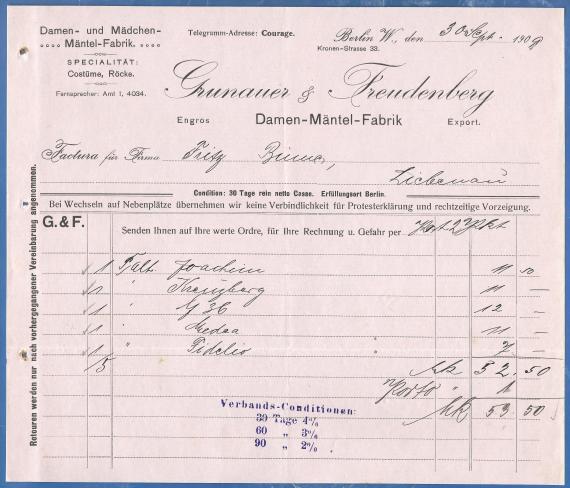 Damen- und Mädchen-
Mäntel-Fabrik.
SPECIALITÄT:
Costüme, Röcke.
Fernsprecher: Amt I, 4034.
Telegramm-Adresse: Courage.
Berlin W., den 30 Sept. 1909
Kronen-Strasse 33.
Grunauer & Freudenberg
Engros Damen-Mäntel-Fabrik Export.
Factura für Firma Fritz
Liebenau
Condition: 30 Tage rein netto Casse. Erfüllungsort Berlin.
Bei Wechseln auf Nebenplätze übernehmen wir keine Verbindlichkeit für Protesterklärung und rechtzeitige Vorzeigung.
G. & F.
Senden Ihnen auf Ihre werte Ordre, für Ihre Rechnung u. Gefahr per Post 2 Pkt
1 Palt. Joachim 11 50
1 " Kreuzberg 11 —
1 " G 36 12 —
1 " Medea 11 —
1 " Fidelio 7 —
/5 Mk 52.50
Porto " 1
Mk 53.50
Verbands-Conditionen:
30 Tage 4%
60 „ 3%
90 „ 2%
Retouren werden nur nach vorhergegangener Vereinbarung angenommen.